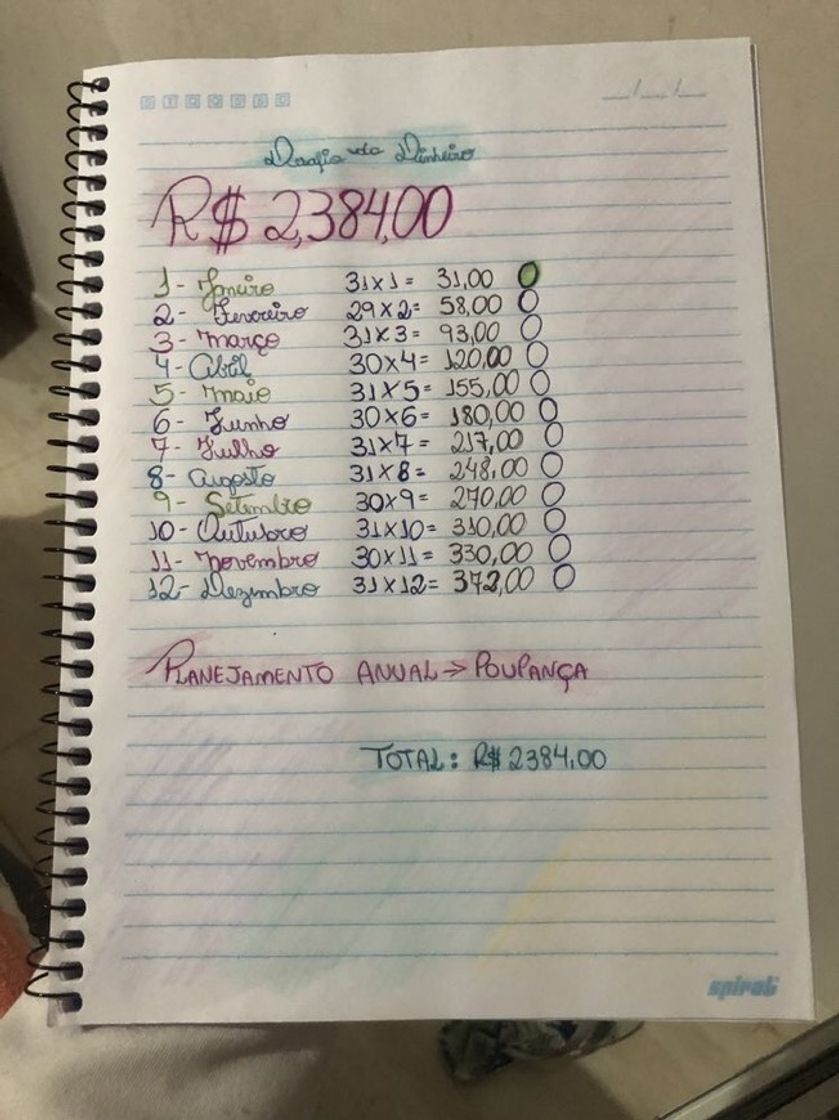 D S T Q Q S S
__/__/__
Desafio do Dinheiro
R$ 2,384,00
1- Janeiro 31x1= 31,00
2- Fevereiro 29x2= 58,00
3- Março 31x3= 93,00
4- Abril 30x4= 120,00
5- Maio 31x5= 155,00
6- Junho 30x6= 180,00
7- Julho 31x7= 217,00
8- Augosto 31x8= 248,00
9- Setembro 30x9= 270,00
10- Outubro 31x10= 310,00
11- Novembro 30x11= 330,00
12- Dezembro 31x12= 372,00
PLANEJAMENTO ANUAL → POUPANÇA
TOTAL: R$ 2384,00
spiral